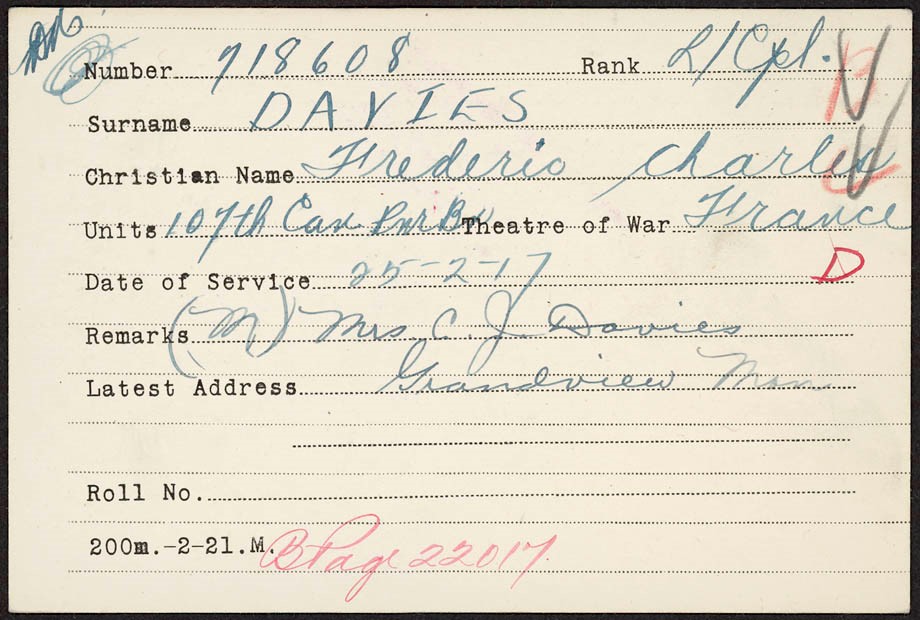 Number 718608 Rank L/Cpl.
Surname DAVIES
Christian Name Frederic Charles
Units 107th Can Pnr Bn Theatre of War France
Date of Service 25-2-17 D
Remarks (M) Mrs. C. J. Davies
Latest Address Grandview Man
Roll No.
200m.-2-21.M. B Page 22017.